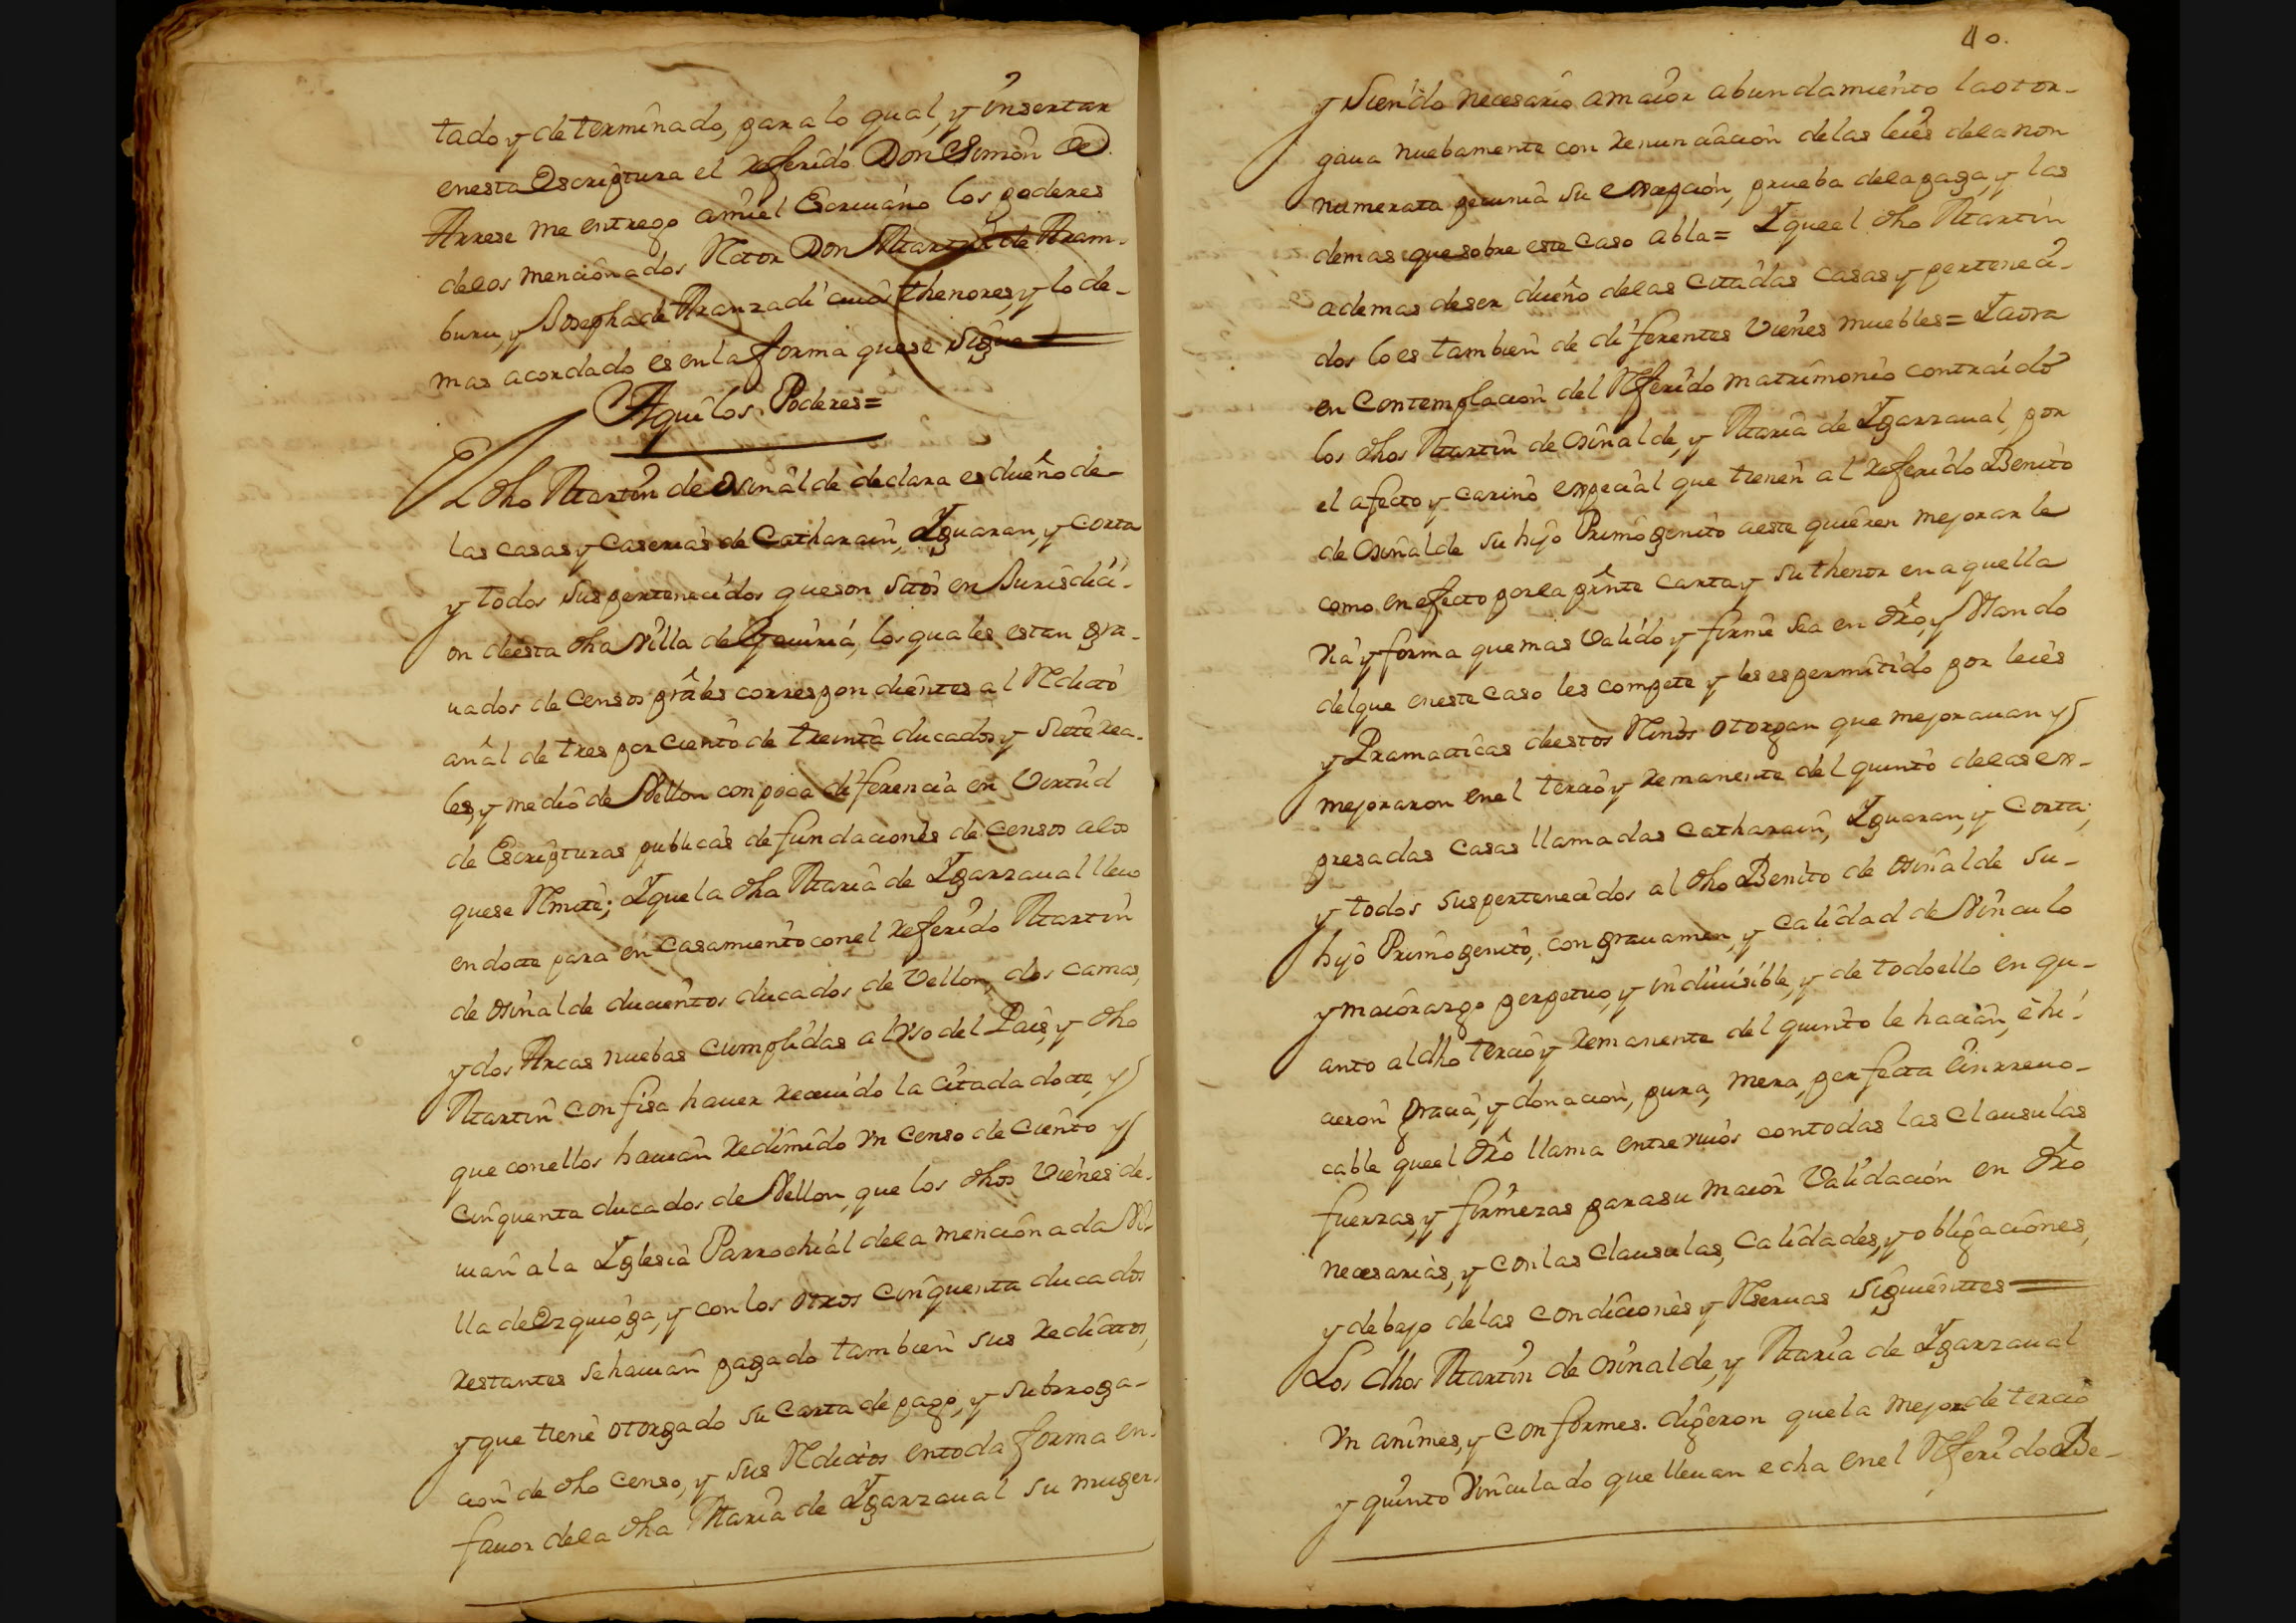 tado y determinado, para lo qual, y insertar
en esta Escriptura el referido Don Simon de
Arrese me entrego a mi el Escriuano los poderes
de los mencionados Rector Don Martin de Aram-
buru, y Josepha de Aranzadi cuios thenores, y lo de-
mas acordado es en la forma que se sigue
Aqui los Poderes=
El dho Martin de Osinalde declara es dueño de
las casas y caserias de Catharain, Yguaran, y Corta
y todos sus pertenecidos que son sitos en Jurisdici-
on de esta dha Villa de , los quales estan gra-
uados de censos prāles correspondientes al Redicto
anāl de tres por ciento de treinta ducados y siete rea-
les y medio de Vellon con poca diferencia en Vertud
de Escripturas publicas de fundaciones de censos a los
que se Rmite; Yque la dha Maria de Ygarzaual lleuo
en docte para en casamiento con el referido Martin
de Osinalde ducientos ducados de Vellon, dos camas,
y dos Arcas nuebas cumplidas al Vso del Pais, y dho
Martin confiesa hauer receuido la citada docte, y
que con ellos hauian redimido vn censo de ciento y
cinquenta ducados de Vellon, que los dhos Vienes de-
uian a la Yglesia Parrochial de la mencionada Vi-
lla de Ezquioga, y con los otros cinquenta ducados
restantes se hauian pagado tambien sus redictos,
y que tiene otorgado su carta de pago, y subrroga-
cion de dho censo, y sus Redictos en toda forma en
fauor de la dha Maria de Ygarzaual su muger
40.
y siendo necesario a maior abundamiento la otor-
gaua nuebamente con renunciacion de las leies de la non
numerata pecunia su excepcion, prueba de la paga, y las
demas que sobre este caso abla= Yque el dho Martin
ademas de ser dueño de las citadas casas y perteneci-
dos lo es tambien de diferentes Vienes muebles= Yaora
en contemplacion del Referido matrimonio contraido
los dhos Martin de Osinalde, y Maria de Ygarzaual, por
el afecto y cariño especial que tienen al referido Benito
de Osinalde su hijo Primogenito a este quieren mejorar le
como en efecto por la prēnte carta y su thenor en aquella
via y forma que mas valido y firme sea en dr̄o, y Vsando
del que en este caso les compete y les es permitido por leies
y Pramacticas de estos Reinos otorgan que mejorauan y
mejoraron en el tercio y remanente del quinto de las ex-
presadas casas llamadas Catharain, Yguaran, y Corta,
y todos sus pertenecidos al dho Benito de Osinalde su
hijo Primogenito, con grauamen, y calidad de Vinculo
y maiorazgo perpetuo, y indiuisible, y de todo ello en qu-
anto al dho tercio y remanente del quinto le hacian, e hi-
cieron gracia, y donacion, pura, mera, perfecta e inrreuo-
cable que el dr̄o llama entre viuos con todas las clausulas
fuerzas, y firmezas para su maior Validacion en dr̄o
necesarias, y con las clausulas, calidades, y obligaciones,
y debajo de las condiciones y Reseruas siguientes
Los dhos Martin de Osinalde, y Maria de Ygarzaual
vn animes, y conformes. digeron que la mejora de tercio
y quinto vinculado que lleuan echa en el Referido Be-